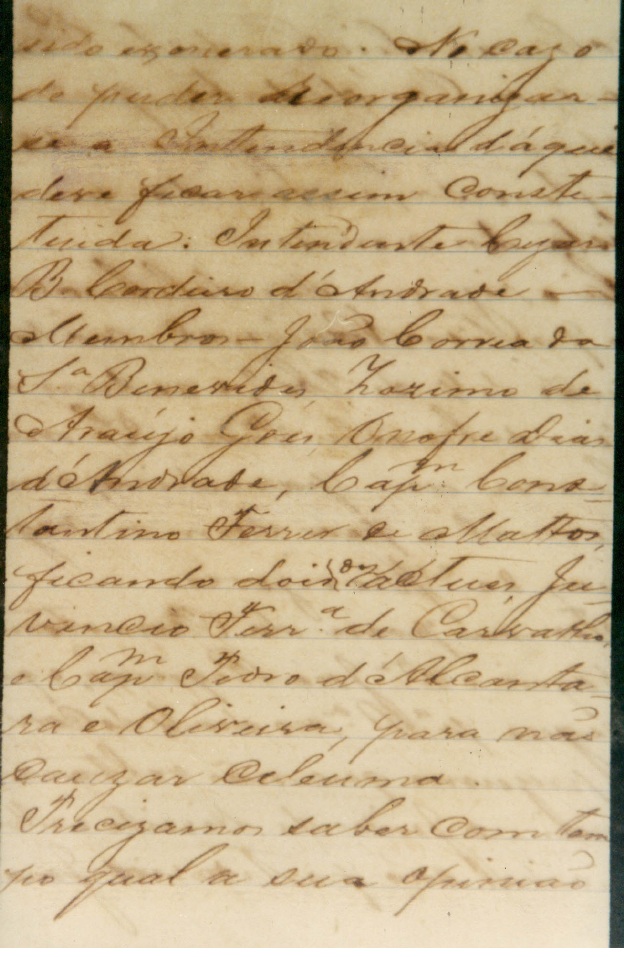 sido exonerado. No cazo
de puder deorganizar-
se a Intendencia d'áqui
deve ficar assim Consti-
tuida: Intendente Cezar
B. Cordeiro d'Andrade —
Membros — João Correa da
S.ª Benevides, Zozimo de
Araujo Góes, Onofre Dias
d'Andrade, Cap.m Cons-
tantino Ferrer e Mattos,
ficando dois dos actues, Ju-
vencio Ferr.ª de Carvalho,
e Cap.m Pedro d'Alcanta-
ra e Oliveira, para não
cauzar celeuma.
Precizamos saber com tem
po qual a sua opinião